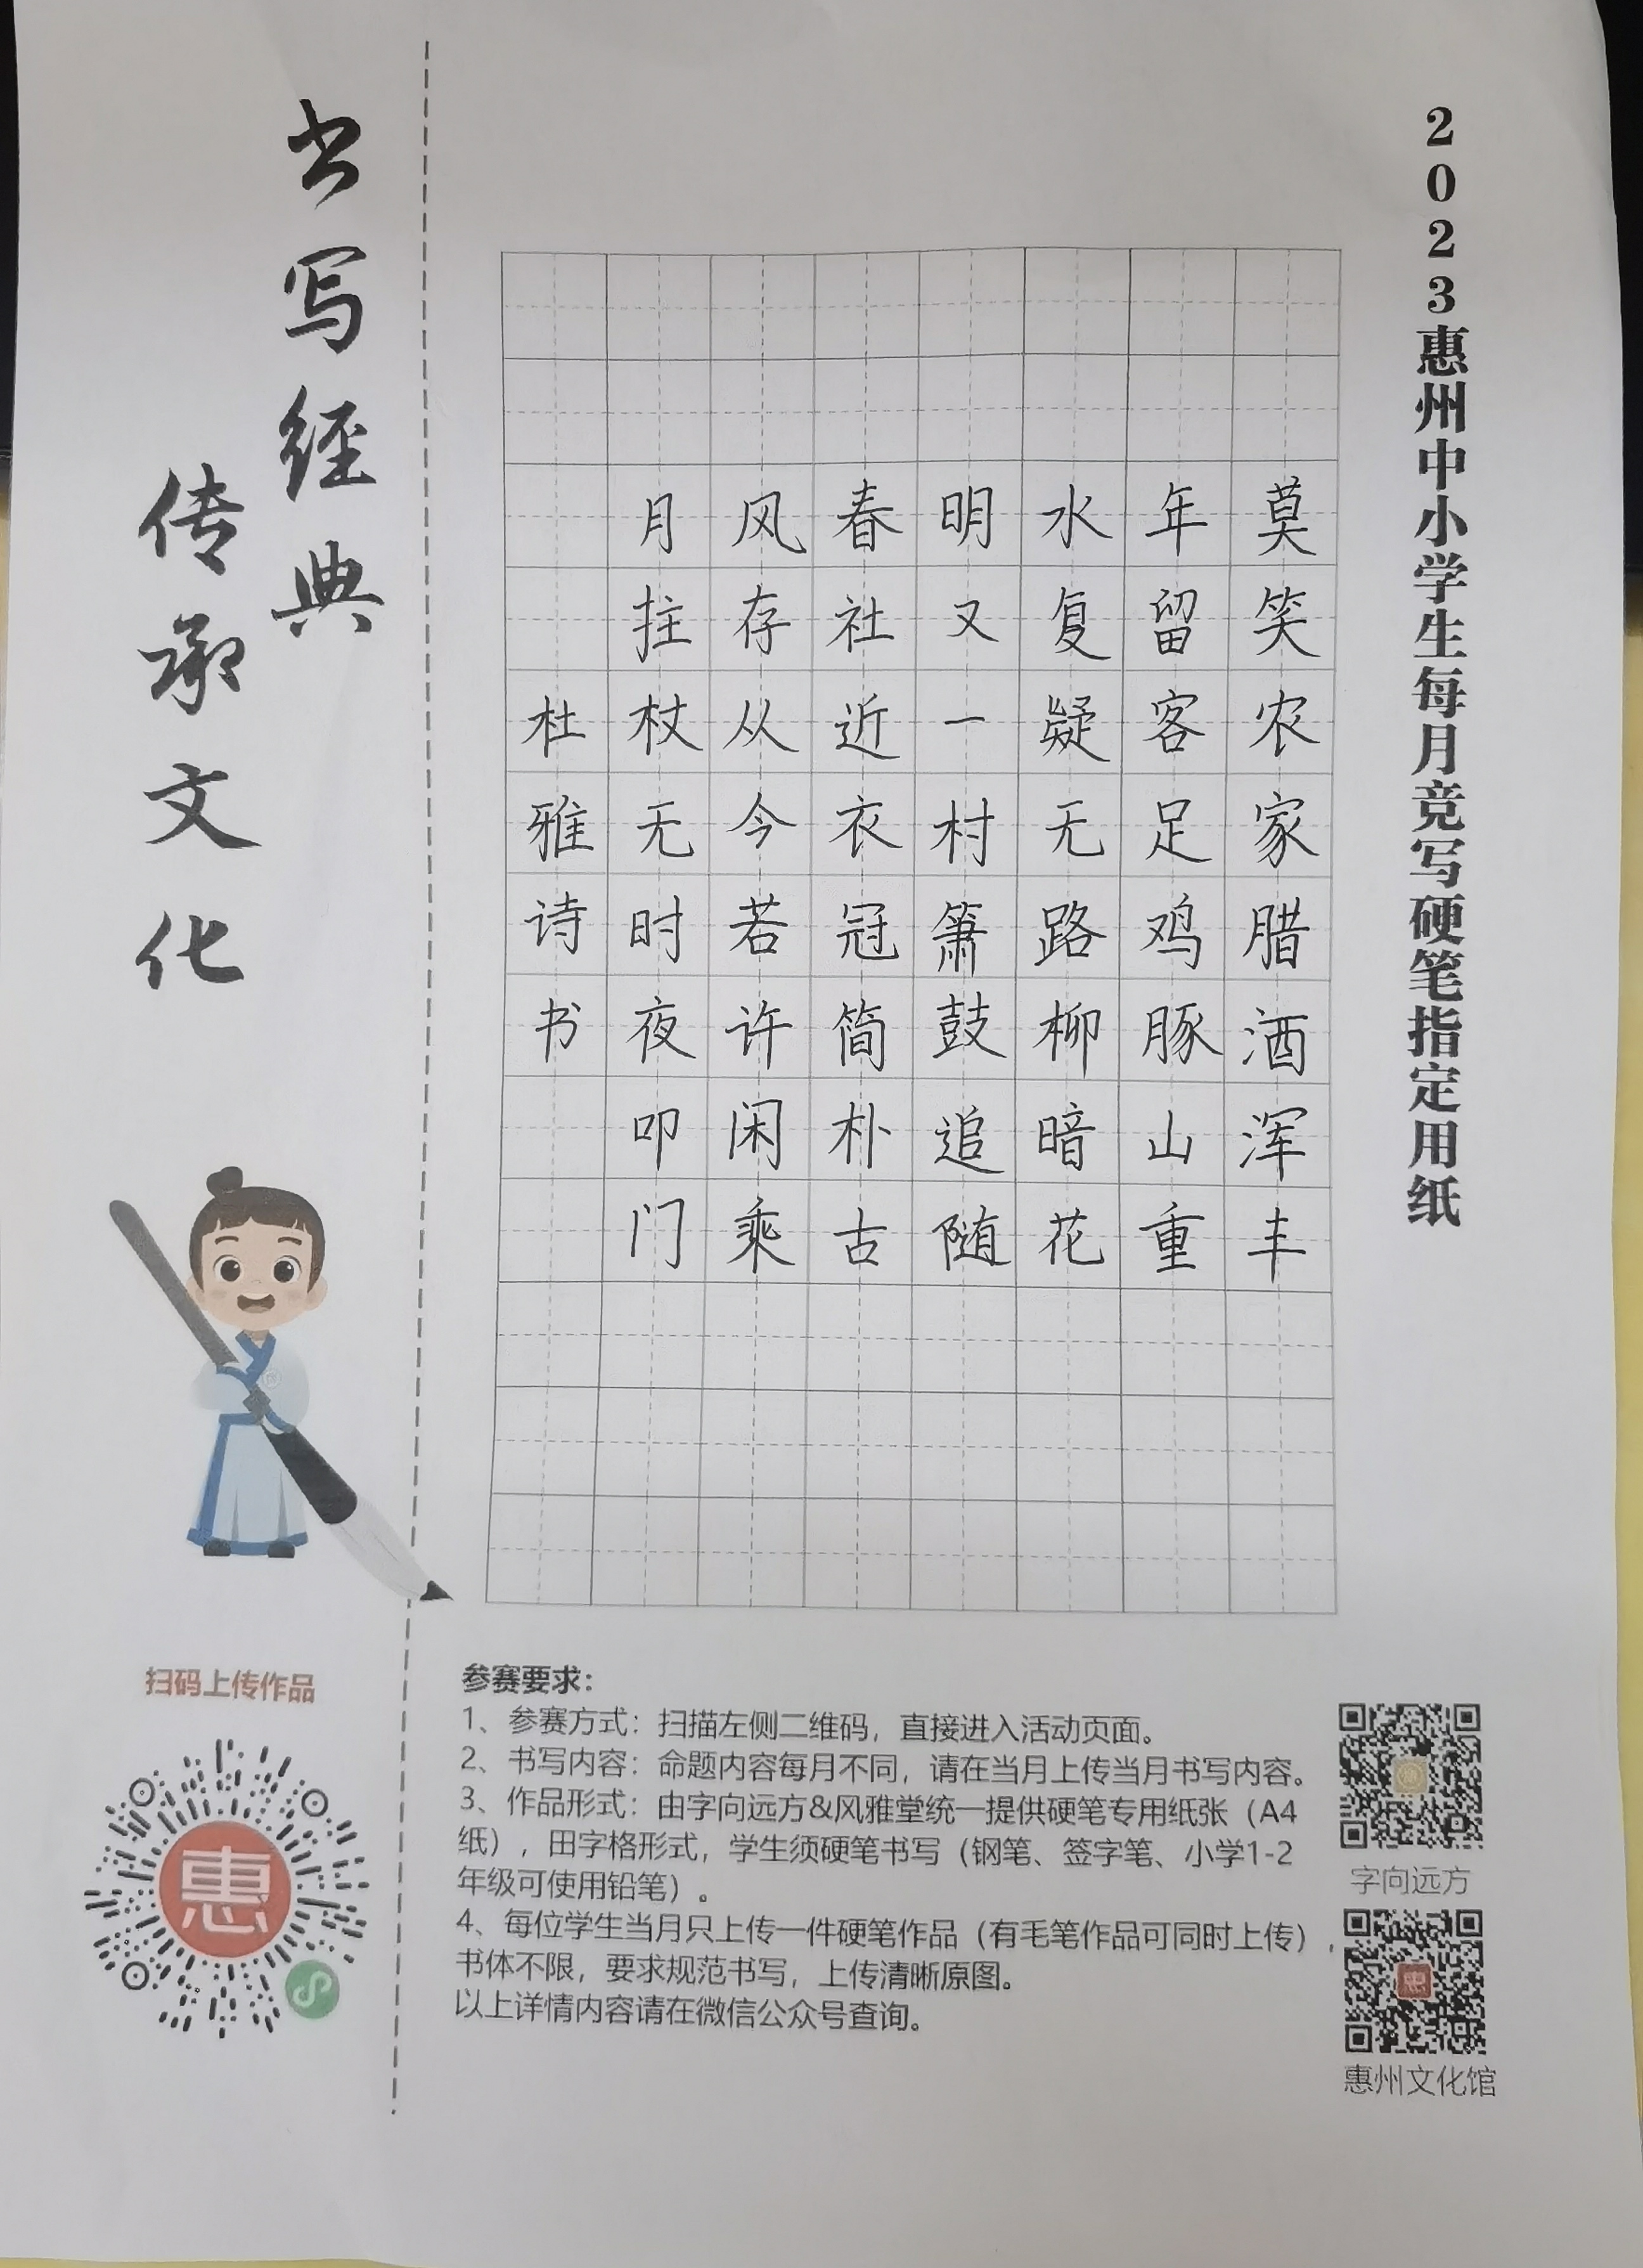 2023惠州中小学生每月竞写硬笔指定用纸
莫笑农家腊酒浑丰
年留客足鸡豚山重
水复疑无路柳暗花
明又一村箫鼓追随
春社近衣冠简朴古
风存从今若许闲乘
月拄杖无时夜叩门
杜雅诗书
书写经典
传承文化
扫码上传作品
惠
参赛要求：
1、参赛方式：扫描左侧二维码，直接进入活动页面。
2、书写内容：命题内容每月不同，请在当月上传当月书写内容。
3、作品形式：由字向远方&风雅堂统一提供硬笔专用纸张（A4
纸），田字格形式，学生须硬笔书写（钢笔、签字笔、小学1-2
年级可使用铅笔）。
4、每位学生当月只上传一件硬笔作品（有毛笔作品可同时上传），
书体不限，要求规范书写，上传清晰原图。
以上详情内容请在微信公众号查询。
字向远方
惠州文化馆